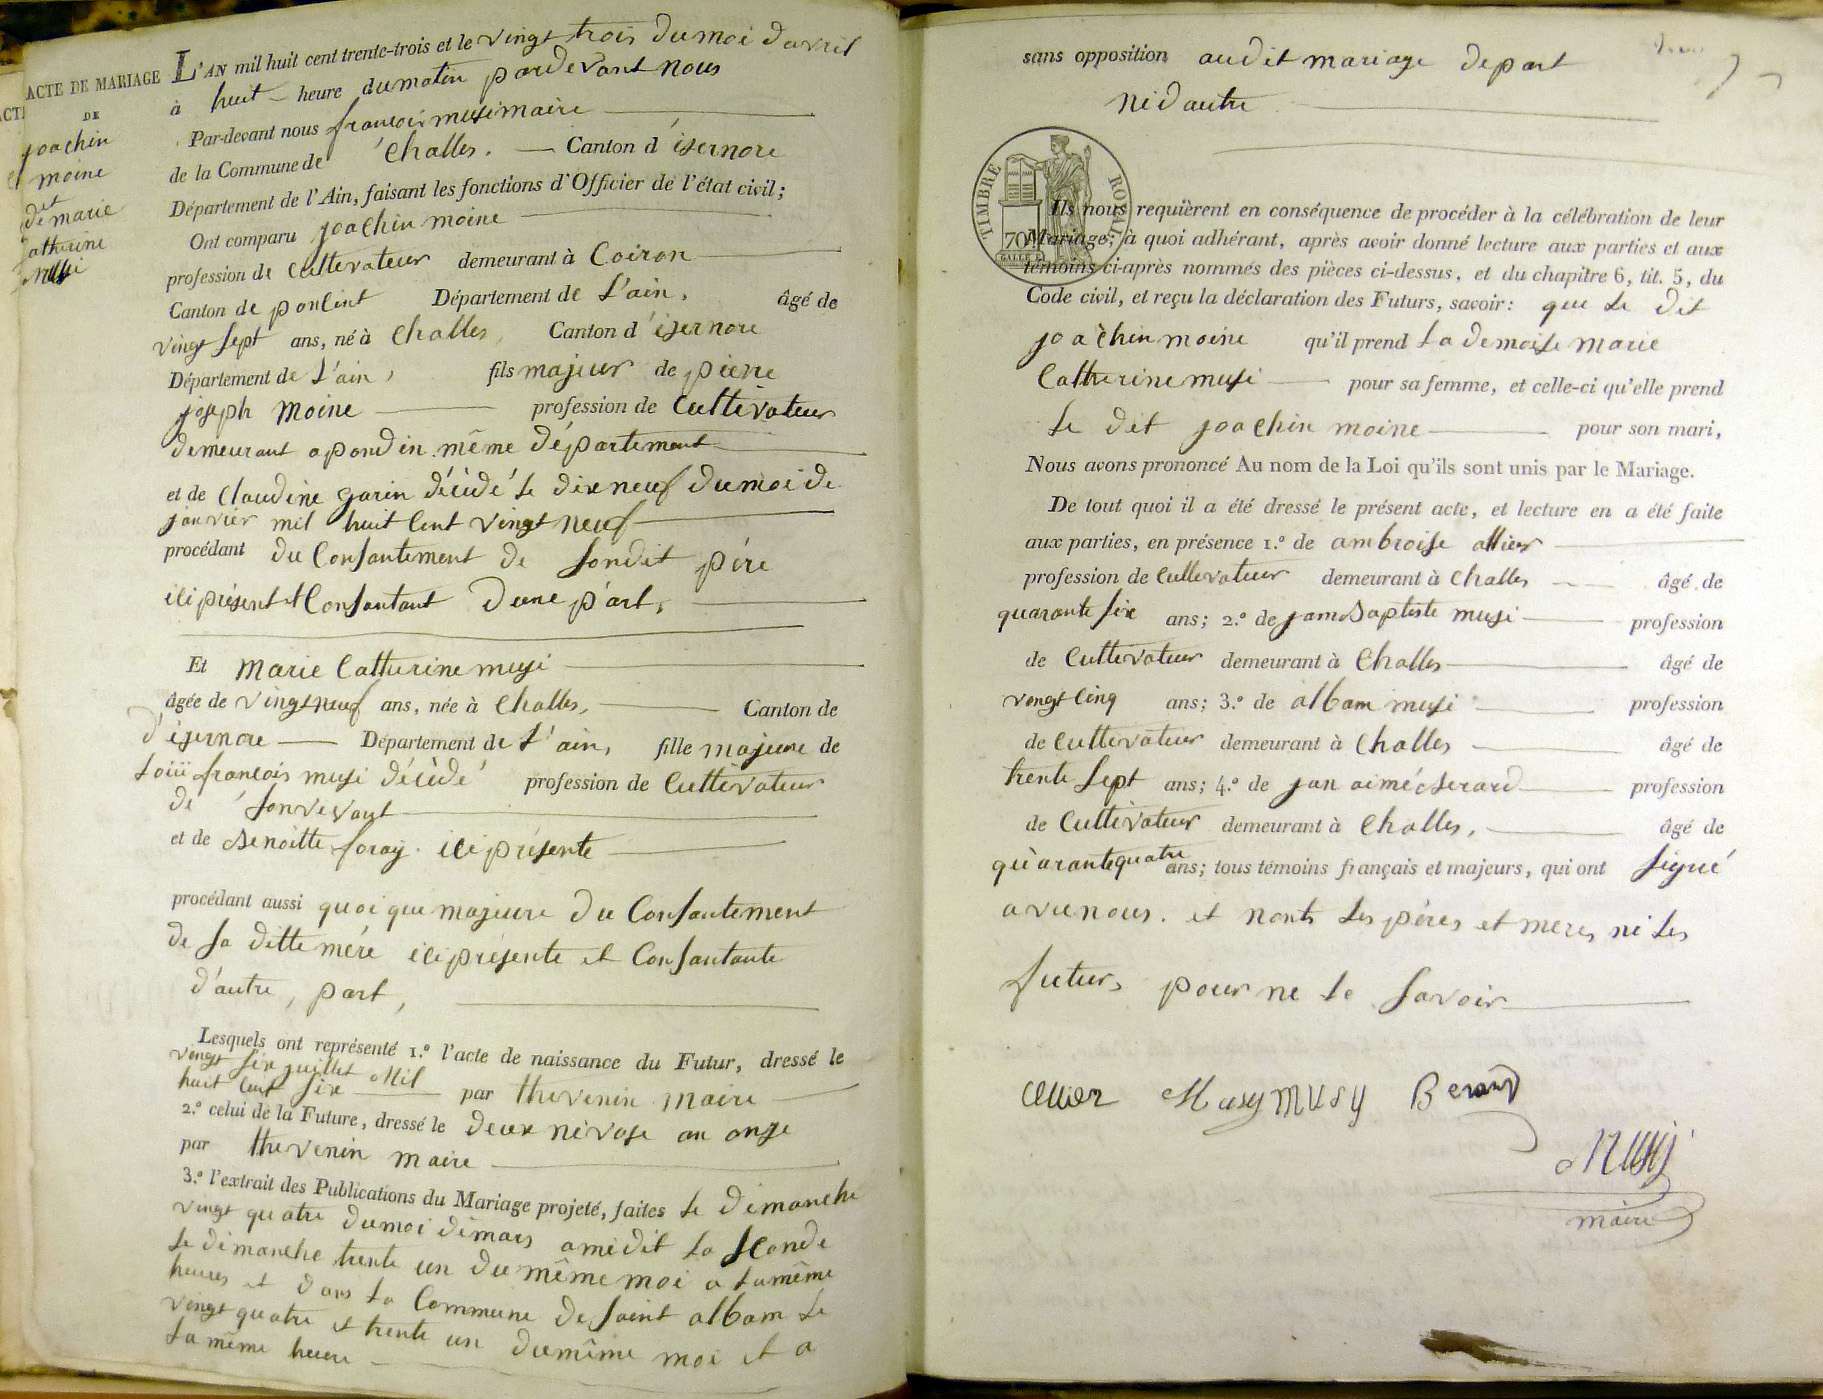 ACTE DE MARIAGE
DE
joachin
moine
et
de marie
Catherine
Musi
L'AN mil huit cent trente-trois et le vingt trois du moi davril
à huit heure du matin pardevant nous
Par-devant nous francois musi maire
de la Commune de Challes. Canton d'isernore
Département de l'Ain, faisant les fonctions d'Officier de l'état civil;
Ont comparu joachin moine
profession de Cultivateur demeurant à Coiron
Canton de poncint Département de L'ain, âgé de
vingt sept ans, né à Challes, Canton d'isernore
Département de L'ain, fils majeur de pierre
joseph moine profession de Cultivateur
demeurant a pondin même département
et de Claudine garin décédé le dixneuf du moi de
janvier mil huit Cent vingt neuf
procédant du Consantement de sondit pére
ici présent et Consantant d'une part,
Et Marie Catherine musi
âgée de vingt neuf ans, née à Challes, Canton de
d'isernore Département de L'ain, fille majeure de
francois musi décédé profession de Cultivateur
de son vivant
et de Benoitte foray ici présente
procédant aussi quoi que majeure du Consantement
de sa ditte mére ici présente et Consantante
d'autre, part,
Lesquels ont représenté 1.º l'acte de naissance du Futur, dressé le
vingt six juillet Mil
huit cent six par thevenin maire
2.º celui de la Future, dressé le deux nivose an onze
par thevenin maire
3.º l'extrait des Publications du Mariage projeté, faites le dimanche
vingt quatre du moi de mars a midit la seconde
le dimanche trente un du même moi a la même
heures et dans la Commune de saint albam le
vingt quatre et trente un du même moi et a
la même heure
sans opposition audit mariage de part
ni dautre
TIMBRE ROYAL
70
Ils nous requièrent en conséquence de procéder à la célébration de leur
Mariage; à quoi adhérant, après avoir donné lecture aux parties et aux
témoins ci-après nommés des pièces ci-dessus, et du chapitre 6, tit. 5, du
Code civil, et reçu la déclaration des Futurs, savoir: que le dit
joachin moine qu'il prend la demoisle marie
Catherine musi pour sa femme, et celle-ci qu'elle prend
le dit joachin moine pour son mari,
Nous avons prononcé Au nom de la Loi qu'ils sont unis par le Mariage.
De tout quoi il a été dressé le présent acte, et lecture en a été faite
aux parties, en présence 1.º de ambroise allier
profession de Cultivateur demeurant à Challes âgé de
quarante six ans; 2.º de jamBaptiste musi profession
de Cultivateur demeurant à Challes âgé de
vingt Cinq ans; 3.º de albam musi profession
de Cultivateur demeurant à Challes âgé de
trente sept ans; 4.º de jan aimé Berard profession
de Cultivateur demeurant à Challes, âgé de
quarante quatre ans; tous témoins français et majeurs, qui ont signé
avec nous. et nonts les péres et meres ni les
futurs pour ne le savoir
Musy MUSY Berard
Musi
maire